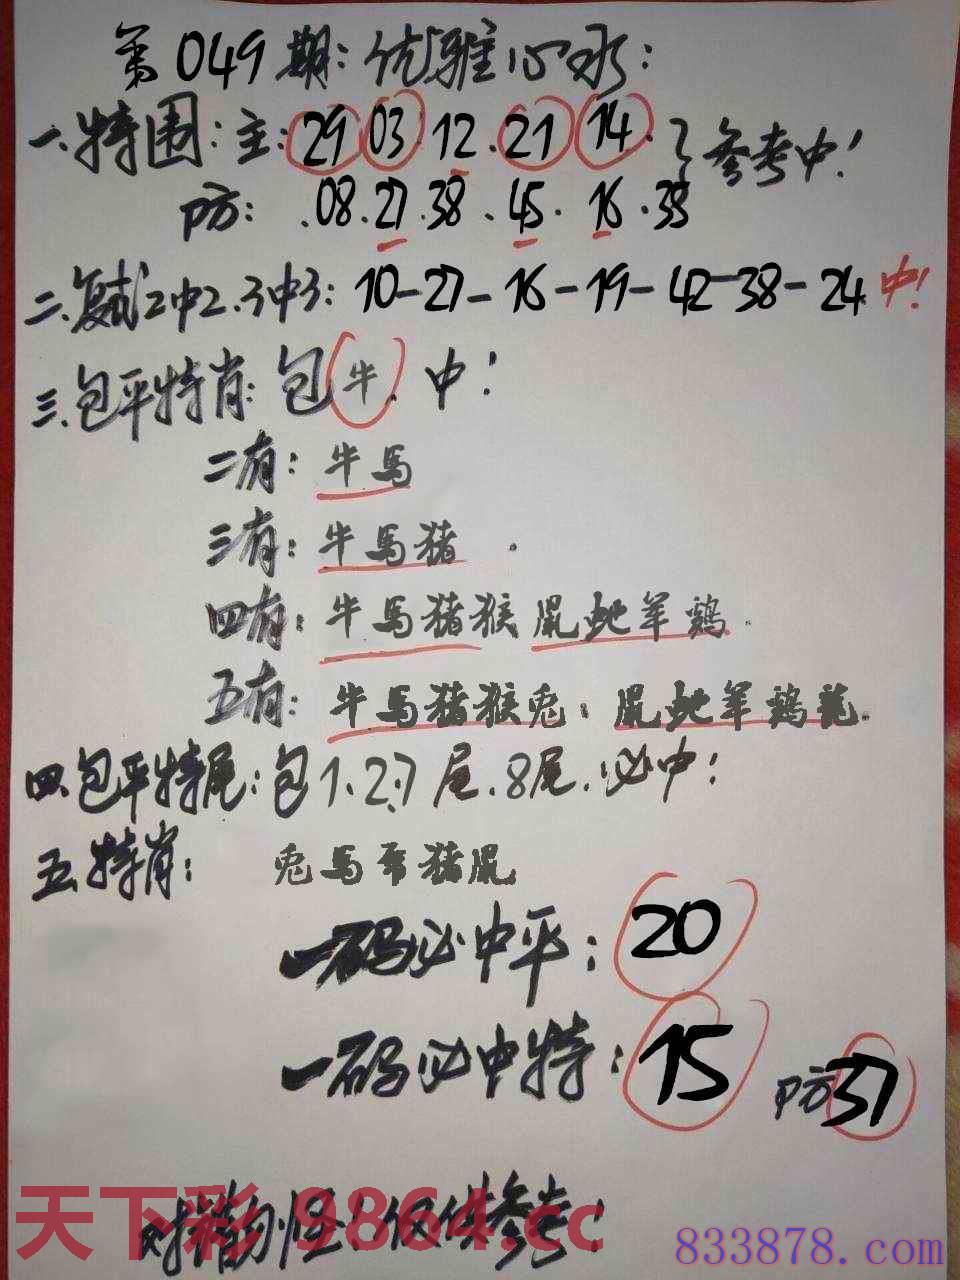 第049期:优雅心水:
一.特围:主:29 03·12.21 14.}参考中!
防: .08.27.38.45.16.33
二.复试2中2.3中3: 10-27-16-19-42-38-24 中!
三.包平特肖:包牛.中!
二有:牛馬
三有:牛馬猪.
四有:牛馬猪猴 鼠蛇羊鷄.
五有:牛馬猪猴兎:鼠蛇羊鷄龍.
四.包平特尾:包1.2.7尾.8尾.必中!
五.特肖: 兎馬 猪鼠
一码必中平:20
一码必中特:15 防37
天下彩 9864.cc
错勿怪!仅供参考!
833878.com